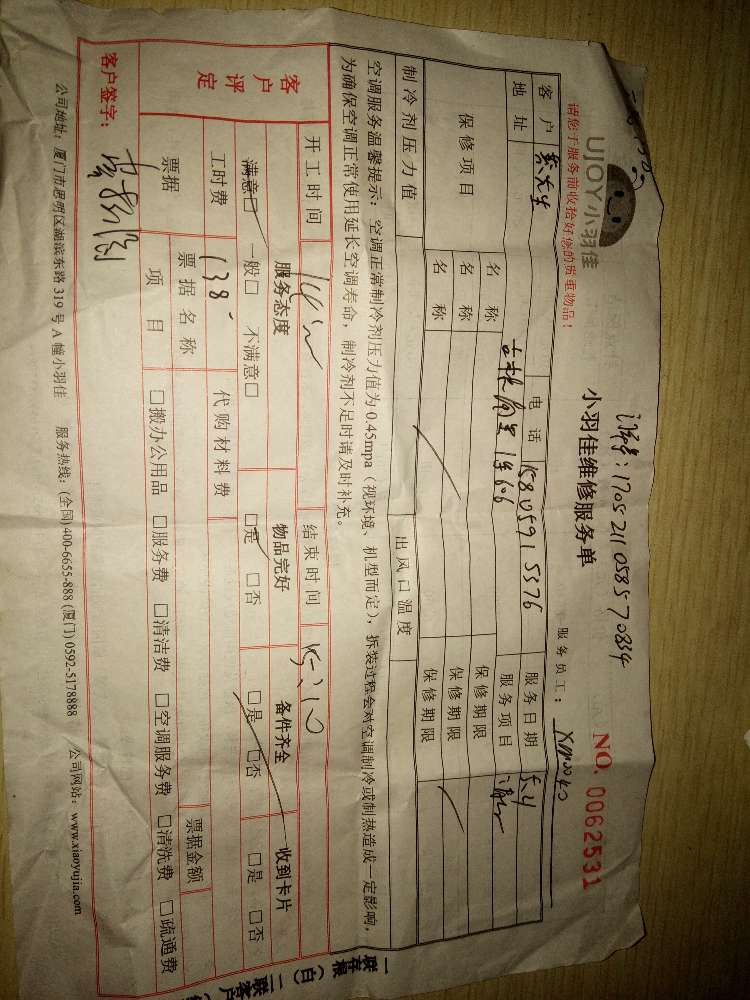 UJOY小羽佳
请您于服务前收拾好您的贵重物品！
1705211058570834
小羽佳维修服务单
NO. 0062531
服务员工：
客户
电话 15805915376
服务日期
地址
服务项目
保修项目
名称
保修期限
名称
保修期限
名称
保修期限
制冷剂压力值
出风口温度
空调服务温馨提示：空调正常制冷剂压力值为0.45mpa（视环境、机型而定），拆装过程会对空调制冷或制热造成一定影响，
为确保空调正常使用延长空调寿命，制冷剂不足时请及时补充。
开工时间
结束时间 15:10
客户评定
服务态度
物品完好
备件齐全
收到卡片
满意□ 一般□ 不满意□
□是 □否
□是 □否
□是 □否
工时费 138
代购材料费
票据
票据名称
票据金额
项目
□搬办公用品 □服务费 □清洁费 □空调服务费 □清洗费 □疏通费
客户签字：
公司地址：厦门市思明区湖滨东路 319 号 A 幢小羽佳 服务热线：(全国)400-6655-888 (厦门) 0592-5178888 公司网站：www.xiaoyujia.com
一联存根（白）二联客户